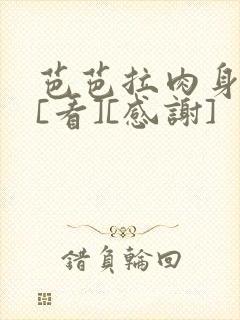 芭芭拉肉身
[看][感謝]
錯負輪回